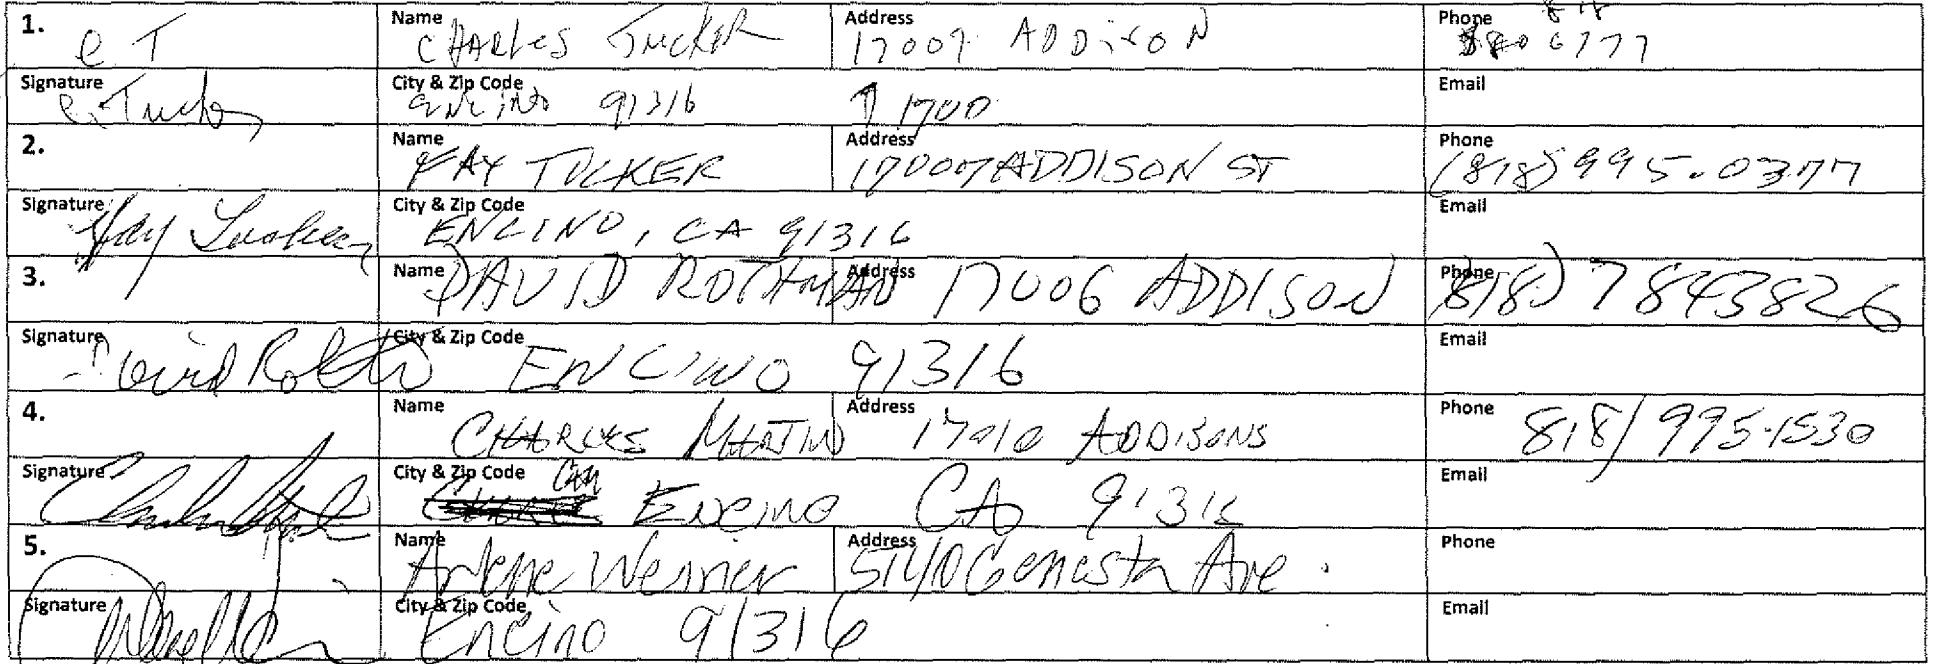 1. C. T Name CHARLES TUCKER Address 17007 ADDISON Phone 818
6777
Signature C. Tucker City & Zip Code ENCINO 91316 ↑ 1700 Email
2. Name KAY TUCKER Address 17007 ADDISON ST Phone (818) 995.0377
Signature Kay Tucker City & Zip Code ENCINO, CA 91316 Email
3. Name DAVID ROTHMAN Address 17006 ADDISON Phone (818) 7843826
Signature David City & Zip Code ENCINO 91316 Email
4. Name CHARLES MARTIN Address 17010 ADDISONS Phone 818/995-1530
Signature City & Zip Code Encino CA 91316 Email
5. Name Arlene Werner Address 5140 Genesta Ave. Phone
Signature City & Zip Code Encino 91316 Email